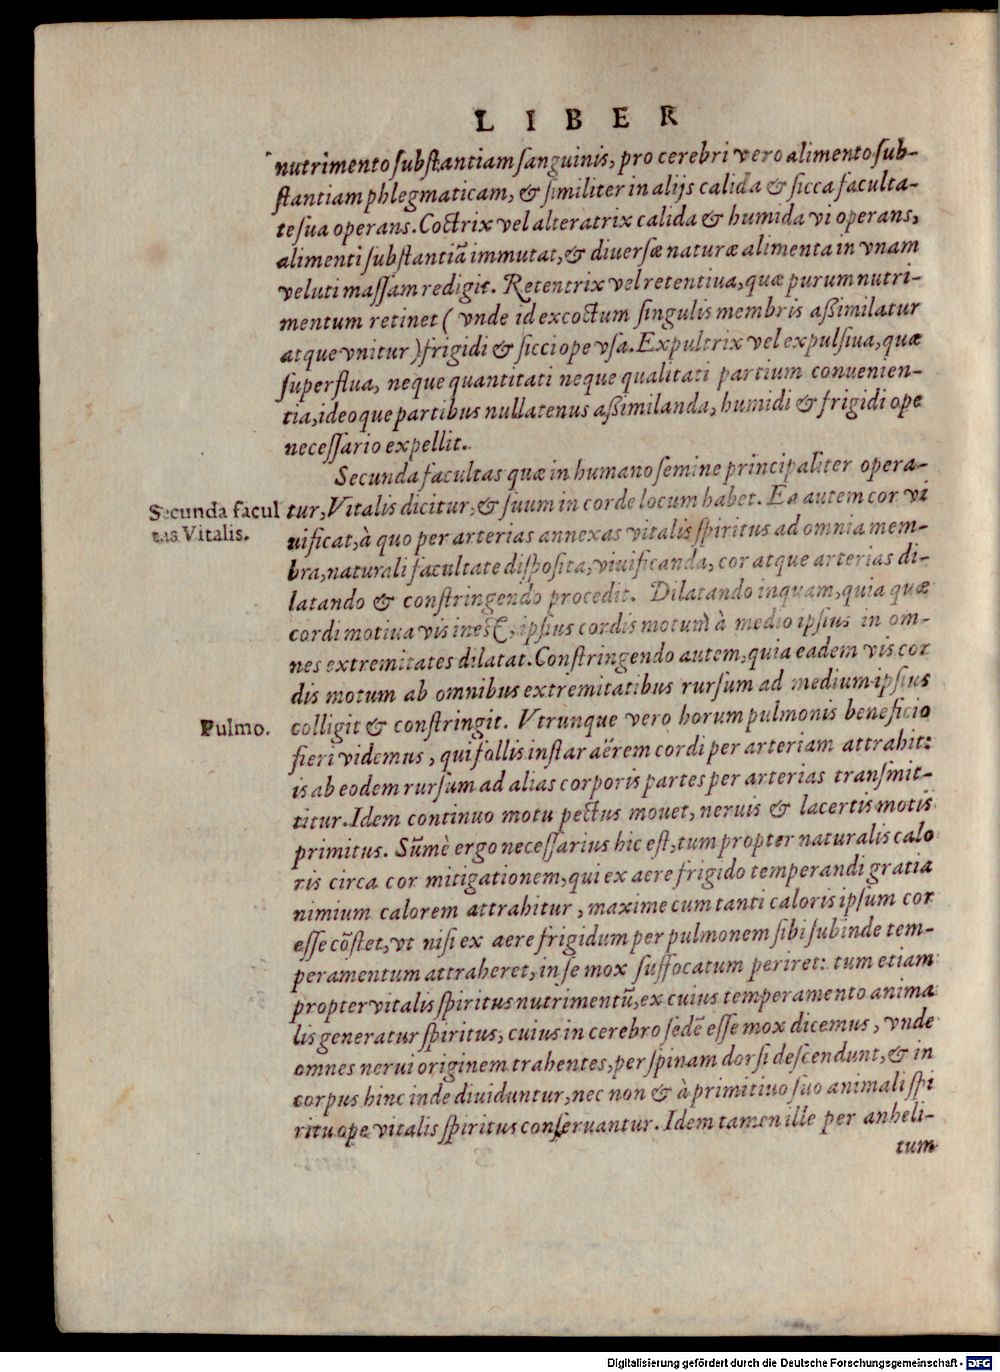 LIBER
nutrimento substantiam sanguinis, pro cerebri vero alimento sub-
stantiam phlegmaticam, & similiter in alijs calida & sicca faculta-
te sua operans. Coctrix vel alteratrix calida & humida vi operans,
alimenti substantiā immutat, & diversæ naturæ alimenta in vnam
veluti massam redigit. Retentrix vel retentiua, quæ purum nutri-
mentum retinet ( vnde id excoctum singulis membris aßimilatur
atque vnitur ) frigidi & sicci ope vsa. Expultrix vel expulsiua, quæ
superflua, neque quantitati neque qualitati partium convenien-
tia, ideoque partibus nullatenus aßimilanda, humidi & frigidi ope
necessario expellit.
Secunda facultas quæ in humano semine principaliter opera-
Secunda facul
tas Vitalis.
tur, Vitalis dicitur, & suum in corde locum habet. Ea autem cor vi
uificat, à quo per arterias annexas vitalis spiritus ad omnia mem-
bra, naturali facultate disposita, viuificanda, cor atque arterias di-
latando & constringendo procedit. Dilatando inquam, quia quæ
cordi motiua vis inest, ipsius cordis motum à medio ipsius in om-
nes extremitates dilatat. Constringendo autem, quia eadem vis cor
dis motum ab omnibus extremitatibus rursum ad medium ipsius
Pulmo.
colligit & constringit. Vtrunque vero horum pulmonis beneficio
fieri videmus, qui follis instar aërem cordi per arteriam attrahit:
is ab eodem rursum ad alias corporis partes per arterias transmit-
titur. Idem continuo motu pectus mouet, neruis & lacertis motis
primitus. Sūmè ergo necessarius hic est, tum propter naturalis calo
ris circa cor mitigationem, qui ex aere frigido temperandi gratia
nimium calorem attrahitur, maxime cum tanti caloris ipsum cor
esse cōstet, vt nisi ex aere frigidum per pulmonem sibi subinde tem-
peramentum attraheret, in se mox suffocatum periret: tum etiam
propter vitalis spiritus nutrimentū, ex cuius temperamento anima
lis generatur spiritus, cuius in cerebro sedē esse mox dicemus, vnde
omnes nerui originem trahentes, per spinam dorsi descendunt, & in
corpus hinc inde diuiduntur, nec non & à primitiuo suo animali spi
ritu ope vitalis spiritus conseruantur. Idem tamen ille per anheli-
tum
Digitalisierung gefördert durch die Deutsche Forschungsgemeinschaft - DFG